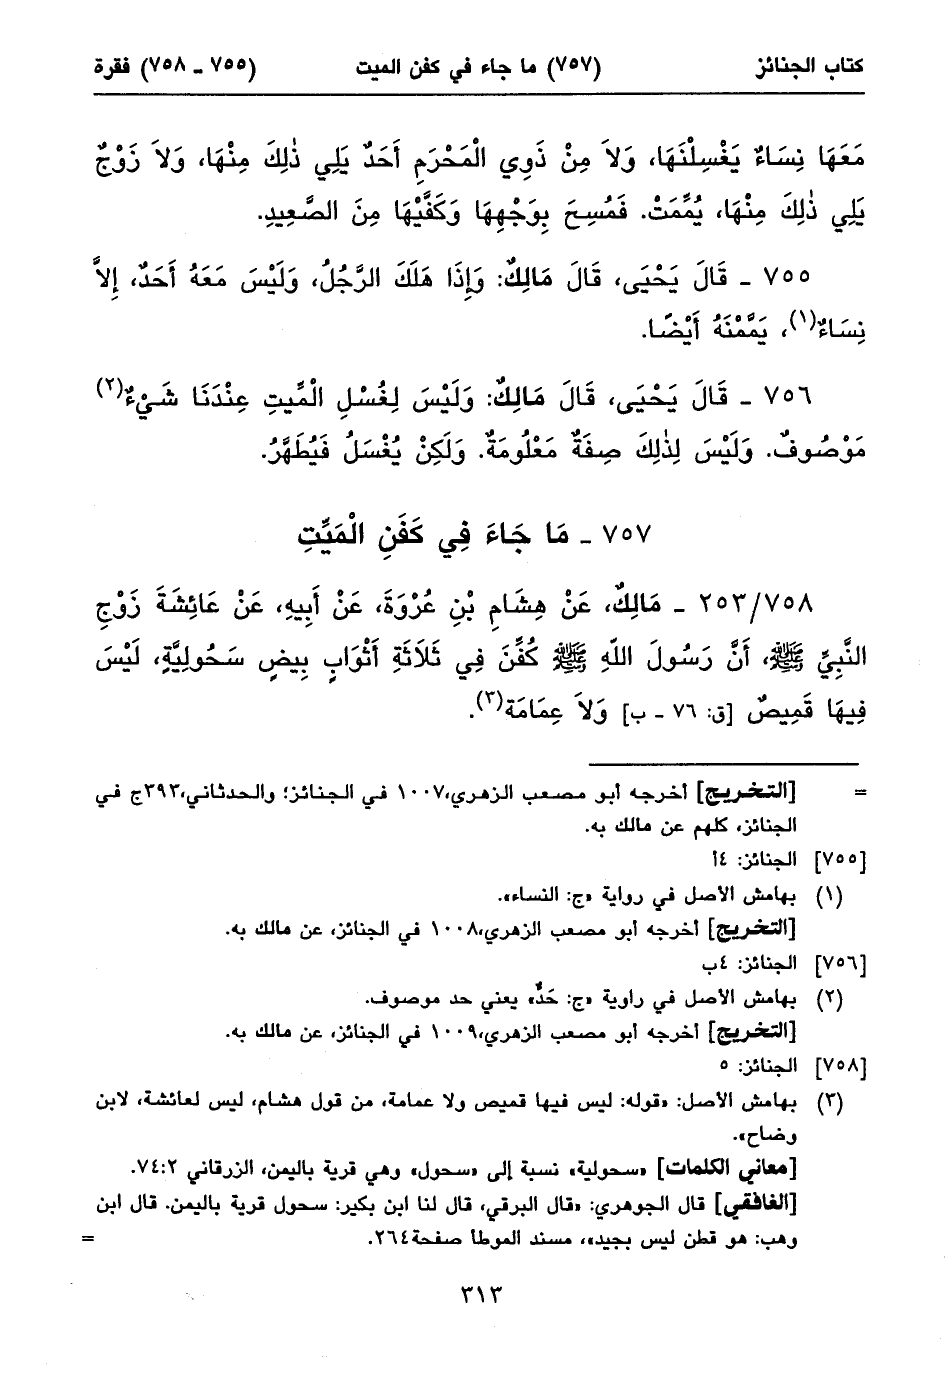 كتاب الجنائز (٧٥٧) ما جاء في كفن الميت (٧٥٥ ـ ٧٥٨) فقرة
مَعَهَا نِسَاءٌ يَغْسِلْنَهَا، وَلاَ مِنْ ذَوِي الْمَحْرَمِ أَحَدٌ يَلِي ذٰلِكَ مِنْهَا، وَلاَ زَوْجٌ
يَلِي ذٰلِكَ مِنْهَا، يُمِّمَتْ. فَمُسِحَ بِوَجْهِهَا وَكَفَّيْهَا مِنَ الصَّعِيدِ.
٧٥٥ ـ قَالَ يَحْيَى، قَالَ مَالِكٌ: وَإِذَا هَلَكَ الرَّجُلُ، وَلَيْسَ مَعَهُ أَحَدٌ، إِلاَّ
نِسَاءٌ(١)، يَمَّمْنَهُ أَيْضًا.
٧٥٦ ـ قَالَ يَحْيَى، قَالَ مَالِكٌ: وَلَيْسَ لِغُسْلِ الْمَيِّتِ عِنْدَنَا شَيْءٌ(٢)
مَوْصُوفٌ. وَلَيْسَ لِذٰلِكَ صِفَةٌ مَعْلُومَةٌ. وَلَكِنْ يُغْسَلُ فَيُطَهَّرُ.
٧٥٧ ـ مَا جَاءَ فِي كَفَنِ الْمَيِّتِ
٢٥٣/٧٥٨ ـ مَالِكٌ، عَنْ هِشَامِ بْنِ عُرْوَةَ، عَنْ أَبِيهِ، عَنْ عَائِشَةَ زَوْجِ
النَّبِيِّ ﷺ، أَنَّ رَسُولَ اللّٰهِ ﷺ كُفِّنَ فِي ثَلاَثَةِ أَثْوَابٍ بِيضٍ سَحُولِيَّةٍ، لَيْسَ
فِيهَا قَمِيصٌ [ق: ٧٦ ـ ب] وَلاَ عِمَامَة(٣).
= [التخريج] أخرجه أبو مصعب الزهري،١٠٠٧ في الجنائز؛ والحدثاني،٣٩٣ج في
الجنائز، كلهم عن مالك به.
[٧٥٥] الجنائز: ٤أ
(١) بهامش الأصل في رواية «ج: النساء».
[التخريج] أخرجه أبو مصعب الزهري،١٠٠٨ في الجنائز، عن مالك به.
[٧٥٦] الجنائز: ٤ب
(٢) بهامش الأصل في راوية «ج: حَدٌّ» يعني حد موصوف.
[التخريج] أخرجه أبو مصعب الزهري،١٠٠٩ في الجنائز، عن مالك به.
[٧٥٨] الجنائز: ٥
(٣) بهامش الأصل: «قوله: ليس فيها قميص ولا عمامة، من قول هشام، ليس لعائشة، لابن
وضاح».
[معاني الكلمات] «سحولية» نسبة إلى «سحول» وهي قرية باليمن، الزرقاني ٧٤:٢.
[الغافقي] قال الجوهري: «قال البرقي، قال لنا ابن بكير: سحول قرية باليمن. قال ابن
وهب: هو قطن ليس بجيد»، مسند الموطأ صفحة٢٦٤. =
٣١٣